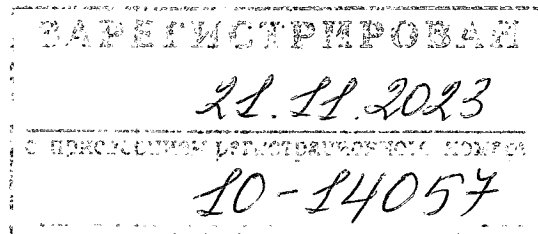 ЗАРЕГИСТРИРОВАН
21.11.2023
с присвоением регистрационного номера
10-14057